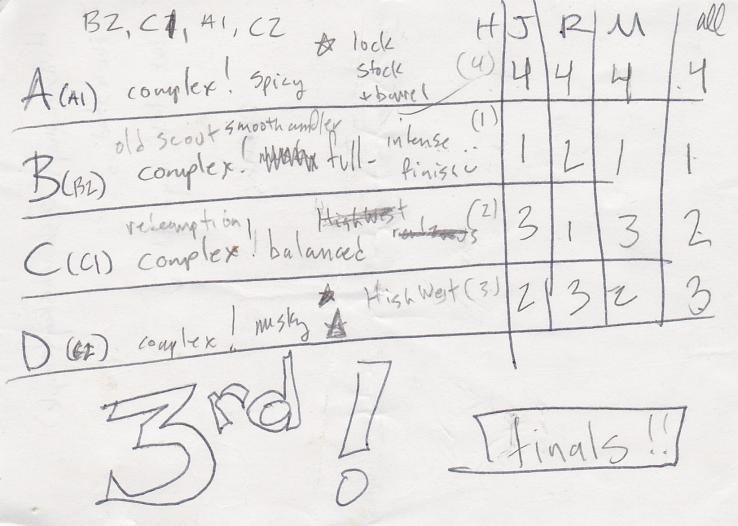 B2, C1, A1, C2
☆ lock
stock
+ barrel
H J R M all
A (A1) complex! spicy (4) 4 4 4 4
old scout smooth ambler
B (B2) complex! full- intense finish (1) 1 2 1 1
redemption
High West
rendezvous
C (C1) complex! balanced (2) 3 1 3 2
High West (3) 2 3 2 3
D (C2) complex! musky
3rd!
finals!!